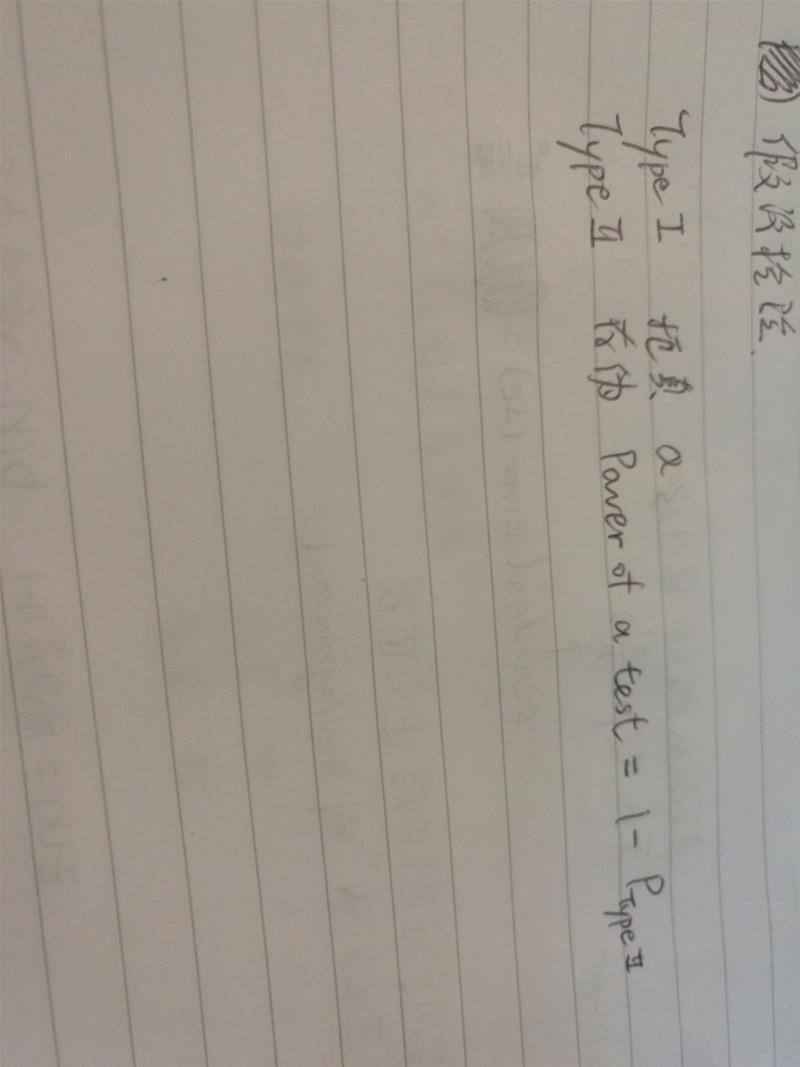 假设检验.
Type I 拒真 α
Type II 存伪 Power of a test = 1 - P Type II